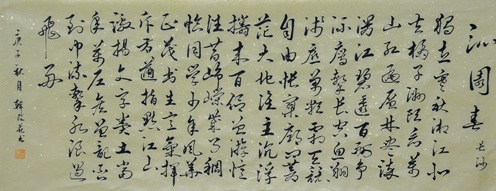 沁園春 長沙
獨立寒秋湘江北
去橘子洲頭看萬
山紅遍層林盡染
漫江碧透百舸爭
流鷹擊長空魚翔
淺底萬類霜天競
自由悵寥廓問蒼
茫大地誰主沉浮
攜來百侶曾遊憶
往昔崢嶸歲月稠
恰同學少年風華
正茂書生意氣揮
斥方遒指點江山
激揚文字糞土當
年萬戶侯曾記否
到中流擊水浪遏
飛舟
庚子秋月